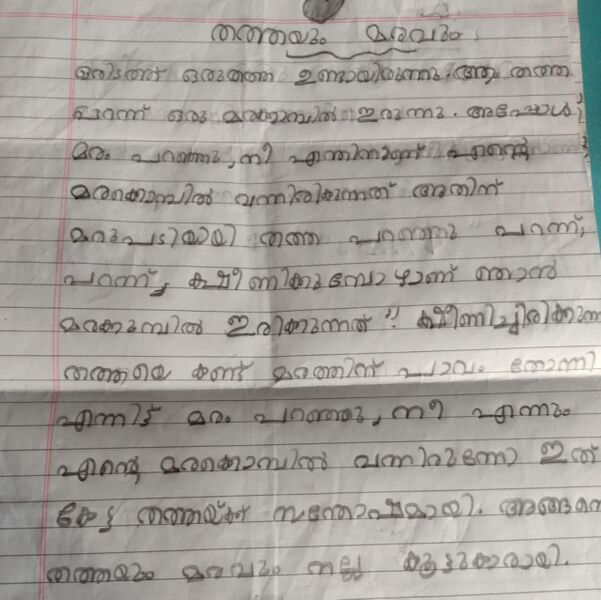 തത്തയും മരവും
ഒരിടത്ത് ഒരുതത്ത ഉണ്ടായിരുന്നു. ആ തത്ത
പറന്ന് ഒരു മരക്കൊമ്പിൽ ഇരുന്നു. അപ്പോൾ,
മരം പറഞ്ഞു, നീ എന്തിനാണ് എന്റെ
മരക്കൊമ്പിൽ വന്നിരിക്കുന്നത് അതിന്
മറുപടിയായി തത്ത പറഞ്ഞു പറന്ന്,
പറന്ന്, ക്ഷീണിക്കുമ്പോഴാണ് ഞാൻ
മരക്കൊമ്പിൽ ഇരിക്കുന്നത്" ക്ഷീണിച്ചിരിക്കുന്ന
തത്തയെ കണ്ട് മരത്തിന് പാവം തോന്നി
എന്നിട്ട് മരം പറഞ്ഞു, നീ എന്നും
എന്റെ മരക്കൊമ്പിൽ വന്നിരുന്നോ ഇത്
കേട്ട തത്തയ്ക്ക് സന്തോഷമായി. അങ്ങനെ
തത്തയും മരവും നല്ല കൂട്ടുകാരായി.